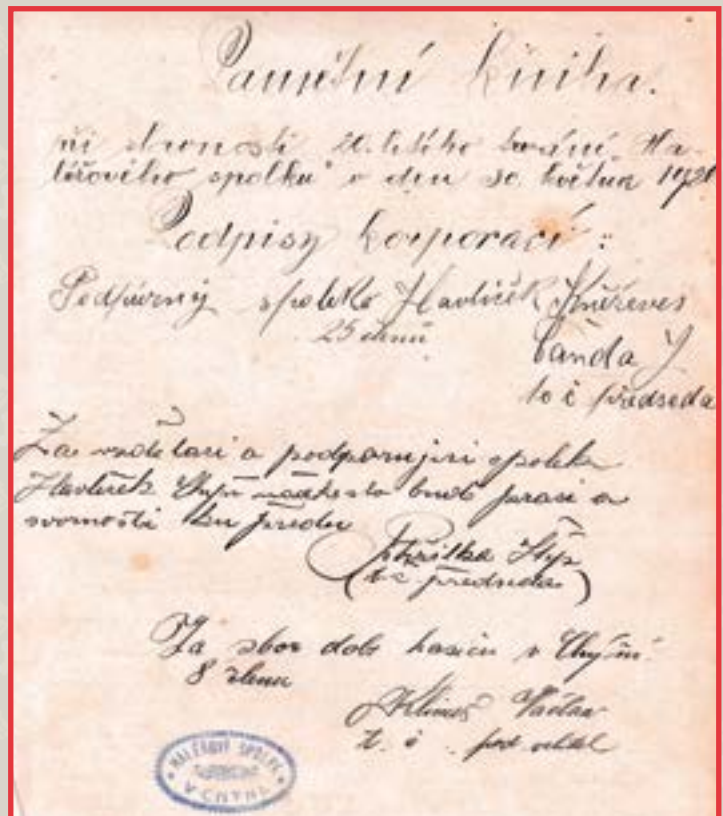 Pamětní kniha.
při slavnosti 20. letého trvání "Ha-
léřového spolku" v den 30. května 1920
Podpisy korporací:
Podpůrný spolek Havlíček Kněževes
25 členů
Vaněda J.
t. č. předseda
Za vzdělaci a podporující spolek
Havlíček Chýně heslo buď práci a
svornosti ku předu
(t. č. předseda)
Za sbor dob. hasičů v Chýni.
8 členů
Klimeš Václav
t. č. pod. velitel
HALÉŘOVÝ SPOLEK
V CHÝNI